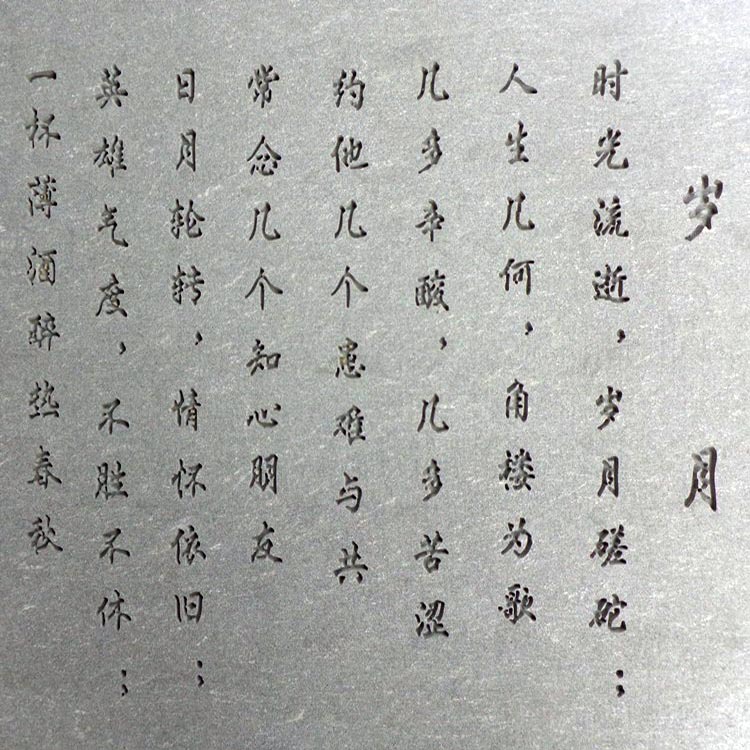 岁月
时光流逝，岁月磋砣；
人生几何，角楼为歌
几多辛酸，几多苦涩
约他几个患难与共
常念几个知心朋友
日月轮转，情怀依旧；
英雄气度，不胜不休；
一杯薄酒醉热春秋